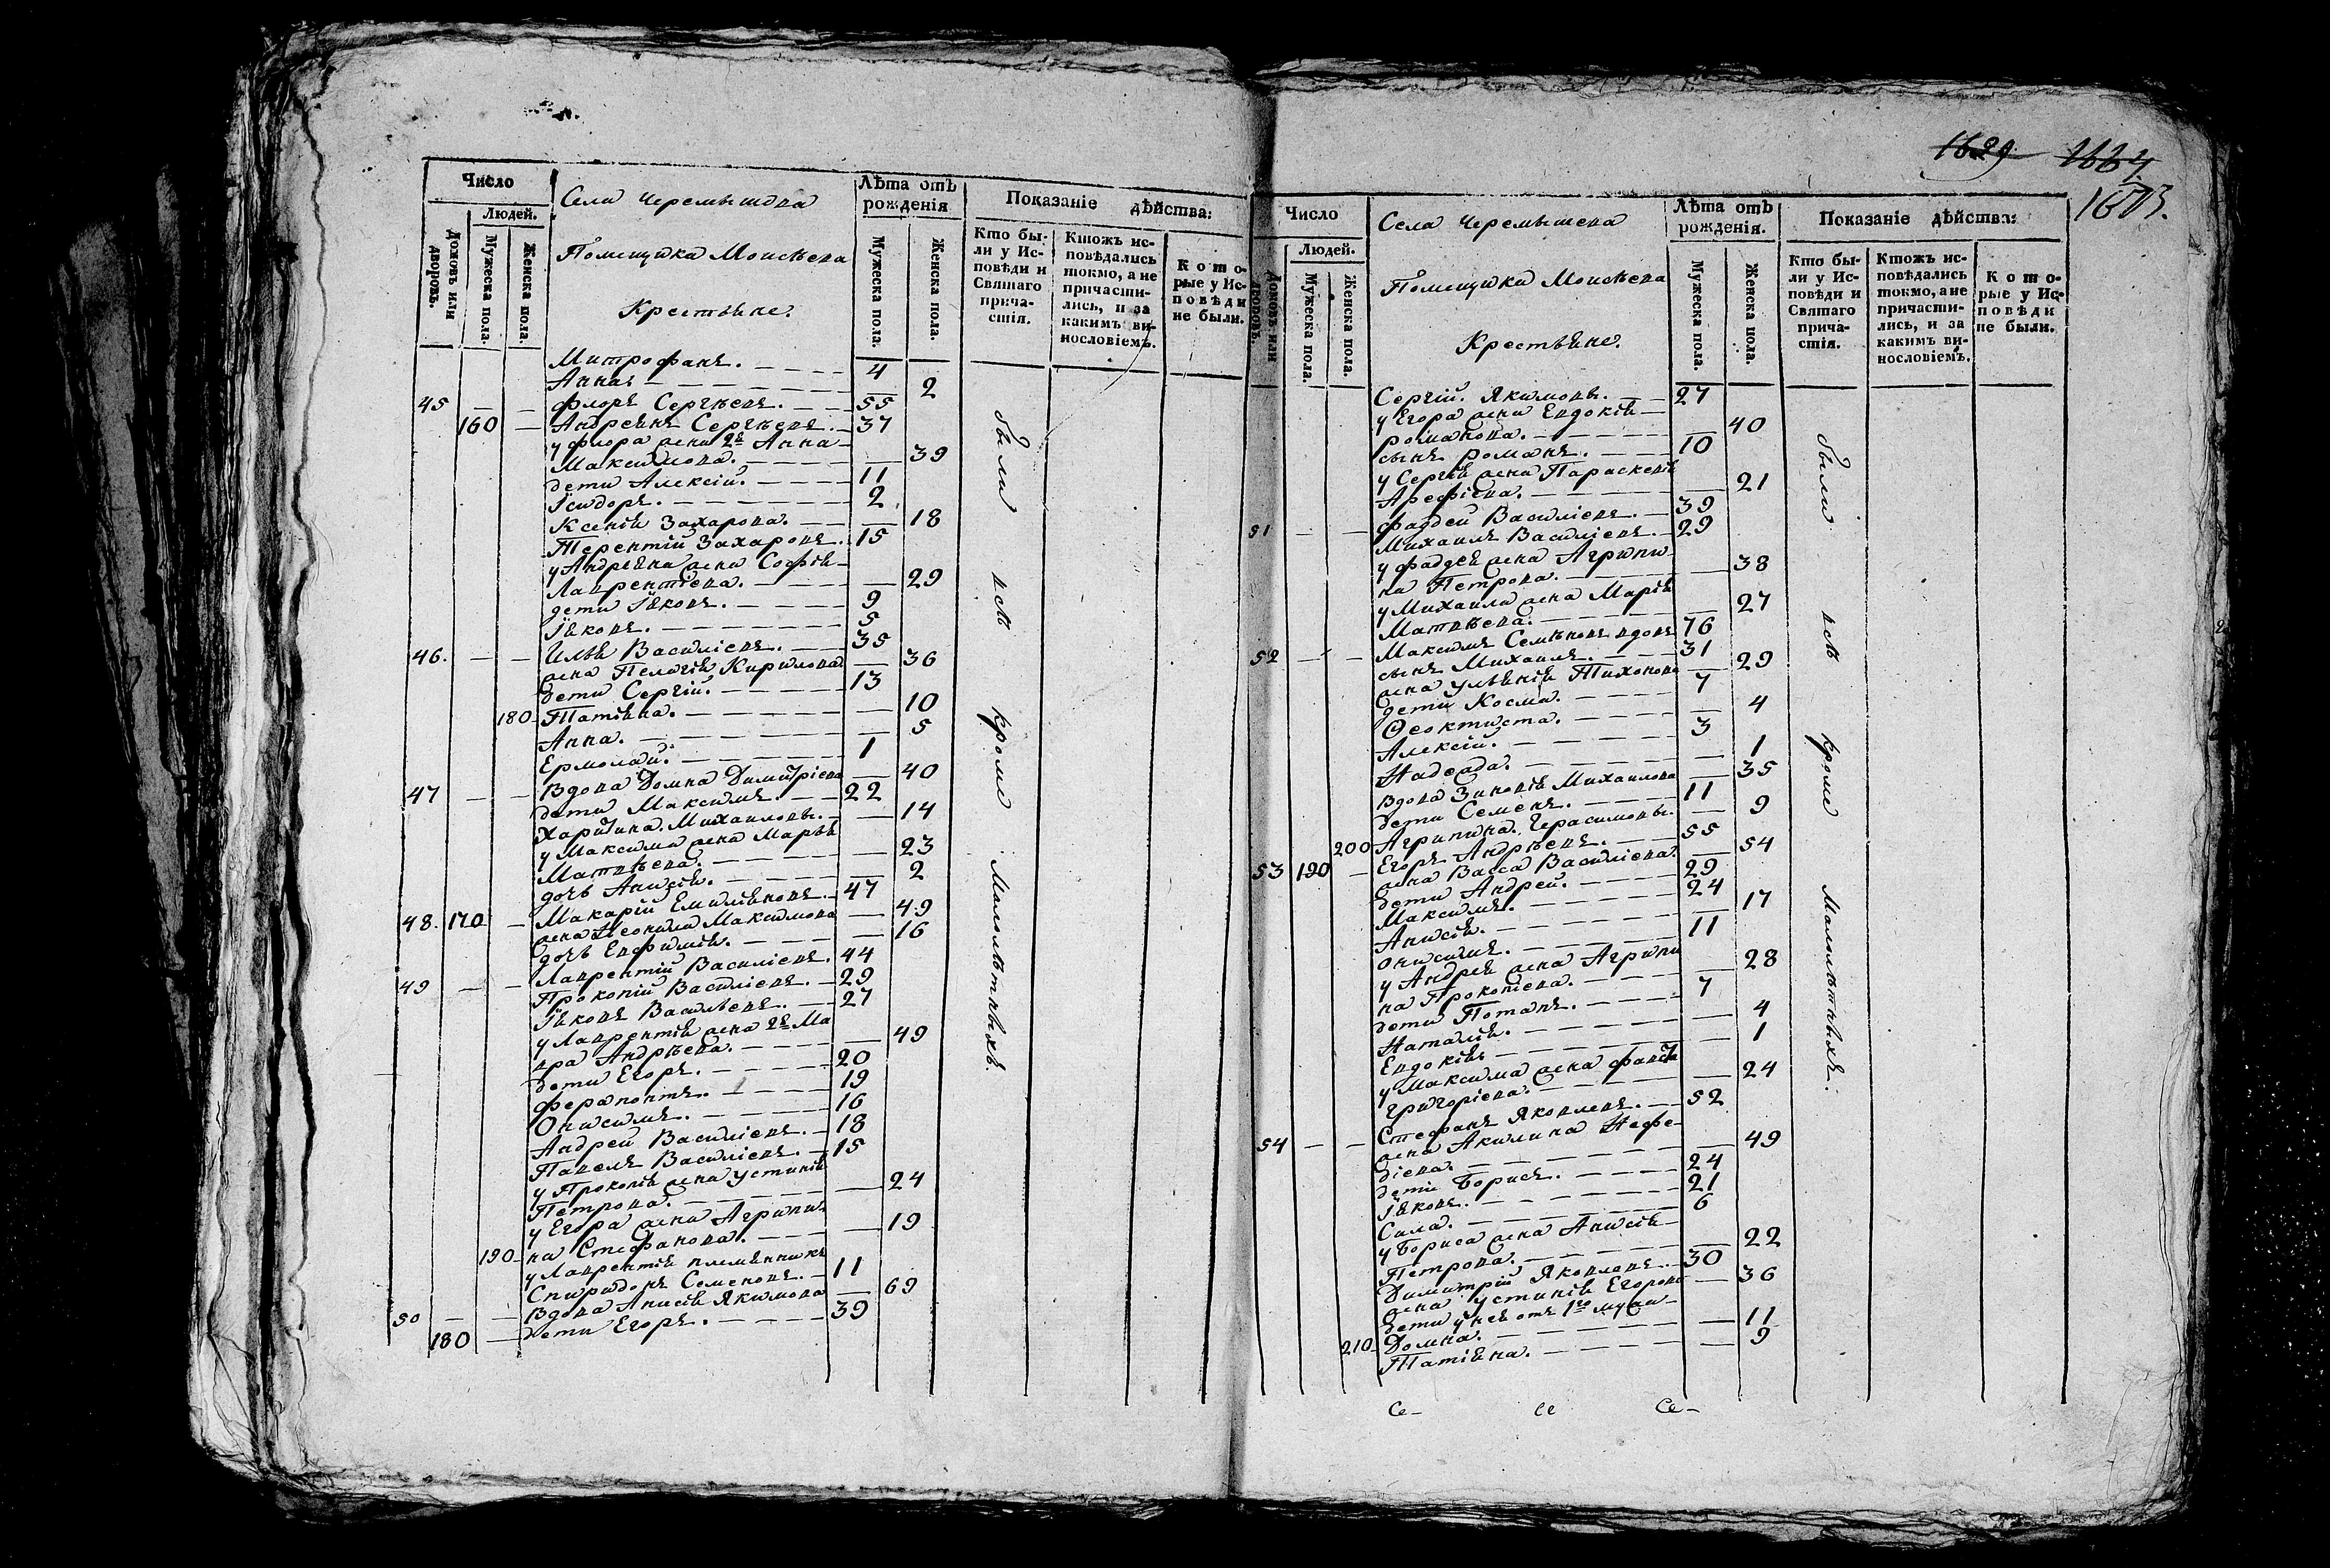 1629 1664
1673.
Число
Людей.
Домовъ или дворовъ.
Мужеска пола.
Женска пола.
Села Черемышева
Помещика Моисѣева
Крестьяне.
Лѣта отъ рожденія
Мужеска пола.
Женска пола.
Показаніе дѣйства:
Кто были у Исповѣди и Святаго причастія.
Ктожъ исповѣдались токмо, а не причастились, и за какимъ винословіемъ.
Которые у Исповѣди не были.
Митрофанъ. 4
Анна. 2
45 — — Флоръ Сергѣевъ. 55
160 — Андреянъ Сергѣевъ. 37
у Флора жена 2я Анна
Максимова. — 39
дети Алексій. 11
Ісидоръ. 2
Ксенія Захарова. — 18
Терентій Захаровъ. 15
у Андреяна жена Софія
Лаврентіева. — 29
дети Іяковъ. 9
Іяковъ. 5
46. — — Илья Василіевъ. 35
жена Пелагія Кирилова — 36
дети Сергій. 13
180 Татіяна. — 10
Анна. — 5
Ермолай. 1
47 — — Вдова Домна Димитріева — 40
дети Максимъ. 22
Харитина. Михаиловы. — 14
у Максима жена Марья
Матвѣева. — 23
дочь Анисія. — 2
48. 170 — Макарій Емиліяновъ. 47
жена Неонила Максимова — 49
дочь Евфимія. — 16
49 — — Лаврентій Василіевъ. 44
Прокопій Василіевъ. 29
Іяковъ Васильевъ. 27
у Лаврентія жена 2я Ма
вра Андрѣева. — 49
дети Егоръ. 20
Ферапонтъ. 19
Онисимъ. 16
Андрей Василіевъ. 18
Павелъ Василіевъ. 15
у Прокопія жена Устинія
Петрова. — 24
у Егора жена Агрипи
190 на Стефанова. — 19
у Лаврентія племянникъ
Спиридонъ Семеновъ. 11
50 — — Вдова Анисія Якимова — 69
180 — дети Егоръ. 39
были всѣ кромѣ Малолѣтныхъ.
Число
Людей.
Домовъ или дворовъ.
Мужеска пола.
Женска пола.
Села Черемышева
Помещика Моисѣева
Крестьяне.
Лѣта отъ рожденія.
Мужеска пола.
Женска пола.
Показаніе дѣйства:
Кто были у Исповѣди и Святаго причастія.
Ктожъ исповѣдались токмо, а не причастились, и за какимъ винословіемъ.
Которые у Исповѣди не были.
Сергій. Якимовы. 27
у Егора жена Евдокія
романова. — 40
сынъ романъ. 10
у Сергія жена Параскевія
Арефіева. — 21
51 — — Фаддей Василіевъ. 39
Михаилъ Василіевъ. 29
у Фаддея жена Агрипи
на Петрова. — 38
у Михаила жена Марія
Матвѣева. — 27
52 — — Максимъ Семѣновъ вдовъ 76
сынъ Михаилъ. 31
жена Ульянія Тихонова — 29
дети Косма. 7
Феоктиста. — 4
Алексій. 3
Надежда. — 1
Вдова Зиновія Михаилова — 35
дети Семенъ. 11
200 Агрипина. Герасимовы. — 9
53 190 — Егоръ Андрѣевъ. 55
жена Васса Василіева. — 54
дети Андрей. 29
Максимъ. 24
Анисія. — 17
Онисимъ. 11
у Андрея жена Агрипи
на Прокопіева. — 28
дети Потапъ. 7
Наталія. — 4
Евдокія. — 1
у Максима жена Фавста
Григоріева. — 24
54 — — Стефанъ Яковлевъ. 52
жена Акилина Нефе
діева. — 49
дети Борисъ. 24
Іяковъ. 21
Сила. 6
у Бориса жена Анисія
Петрова. — 22
Димитрій Яковлевъ. 30
жена Устинія Егорова — 36
дети у нея отъ 1го мужа
210 Домна. — 11
Татіяна. — 9
были всѣ кроме Малолѣтныхъ.
Се- се Се-